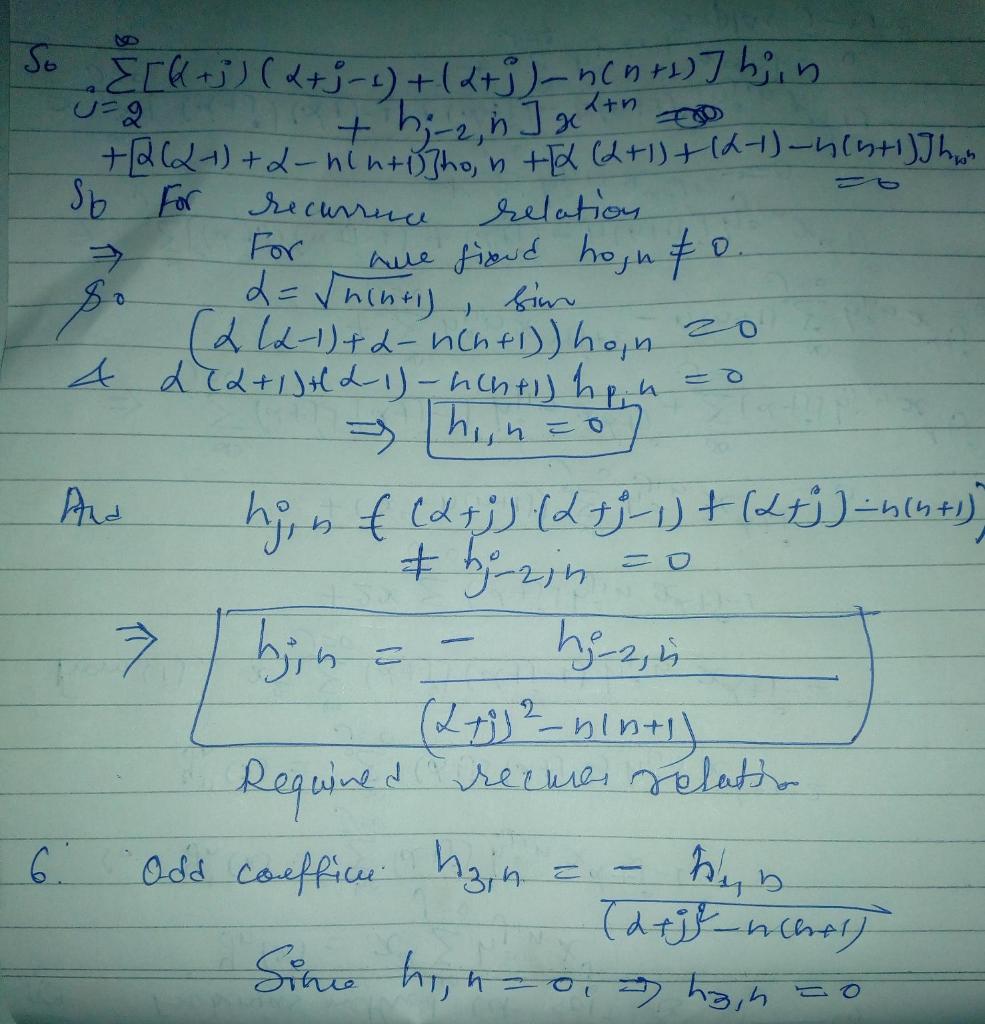 So ∞
Σ [(α+j)(α+j-1)+(α+j)-n(n+1)] hj,n
j=2
+ hj-2,n ] x^α+n
+[α(α-1)+α-n(n+1)]ho,n +[α(α+1)+(α-1)-n(n+1)]h
=0
So For recurrence relation
⇒ For fixed ho,n ≠ 0.
So α = √n(n+1) , Sinc
(α(α-1)+α-n(n+1))ho,n =0
& α(α+1)+(α-1)-n(n+1) h,n =0
⇒ h1,n = 0
And hj,n { (α+j)(α+j-1)+(α+j)-n(n+1)}
+ hj-2,n = 0
⇒ hj,n = - hj-2,n
(α+j)² - n(n+1)
Required recurre relation
6. Odd coeffice h3,n = - h1,n
(α+j)²-n(n+1)
Since h1,n = 0, ⇒ h3,n = 0